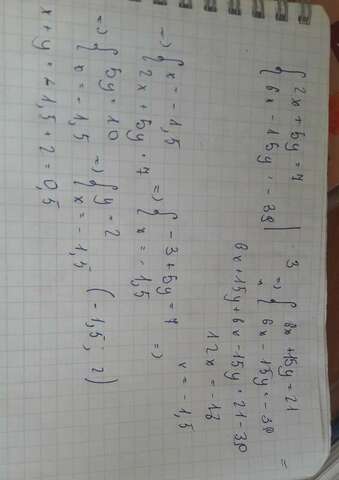 { 2x + 5y = 7
{ 6x - 15y = -39 | 3 => { 6x + 15y = 21
{ 6x - 15y = -39 =
6x + 15y + 6x - 15y = 21 - 39
12x = -18
x = -1,5
=> { x = -1,5
{ 2x + 5y = 7 => { -3 + 5y = 7
{ x = -1,5 =>
=> { 5y = 10
{ x = -1,5 => { y = 2
{ x = -1,5 (-1,5; 2)
x + y = -1,5 + 2 = 0,5